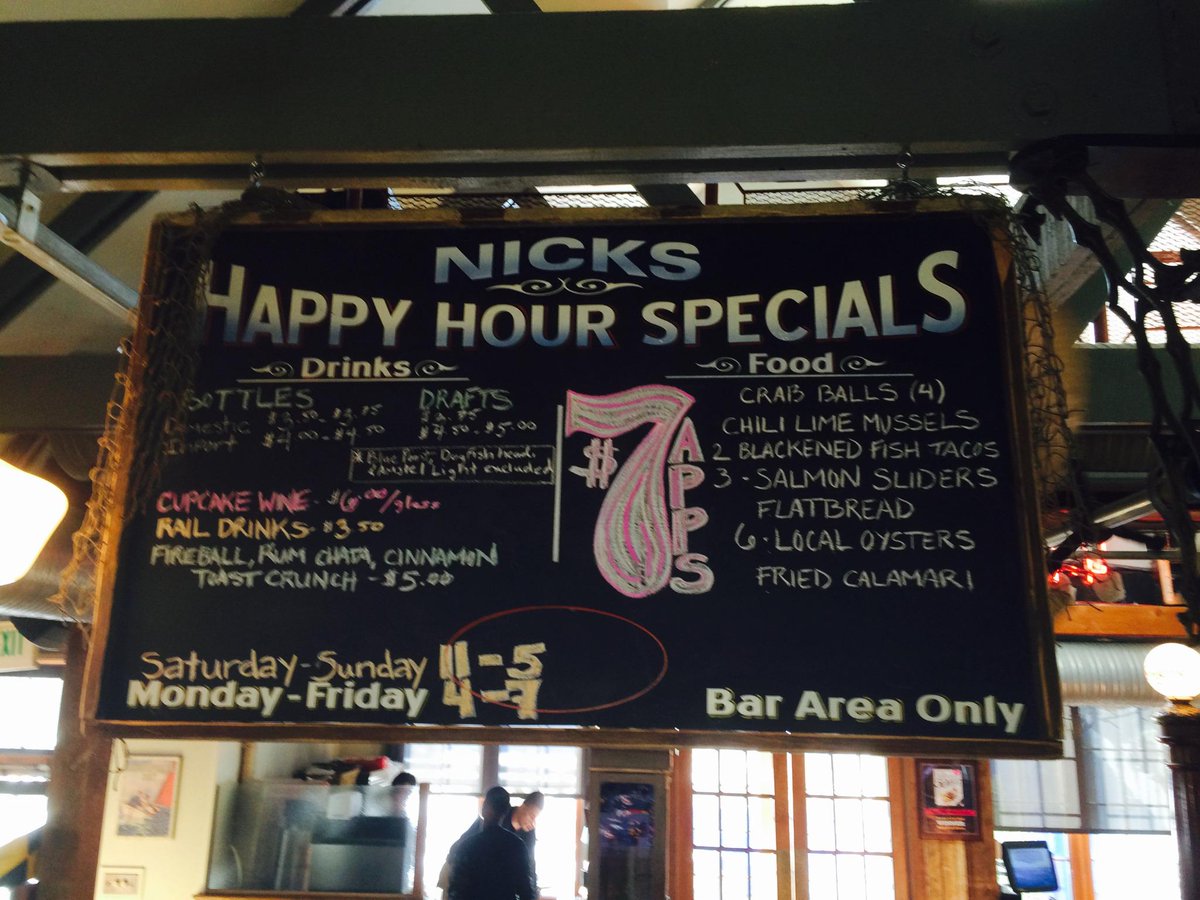 NICKS
HAPPY HOUR SPECIALS
Drinks
BOTTLES
Domestic $3.50 - $3.95
Import $4.00 - $4.50
DRAFTS
$4.50 - $5.00
* Blue Point, Dogfish head,
& Amstel Light excluded
CUPCAKE WINE - $6.00/glass
RAIL DRINKS - $3.50
FIREBALL, RUM CHATA, CINNAMON
TOAST CRUNCH - $5.00
$7 APPS
Food
CRAB BALLS (4)
CHILI LIME MUSSELS
2 BLACKENED FISH TACOS
3 - SALMON SLIDERS
FLATBREAD
6 - LOCAL OYSTERS
FRIED CALAMARI
Saturday - Sunday 11 - 5
Monday - Friday 4 - 7
Bar Area Only